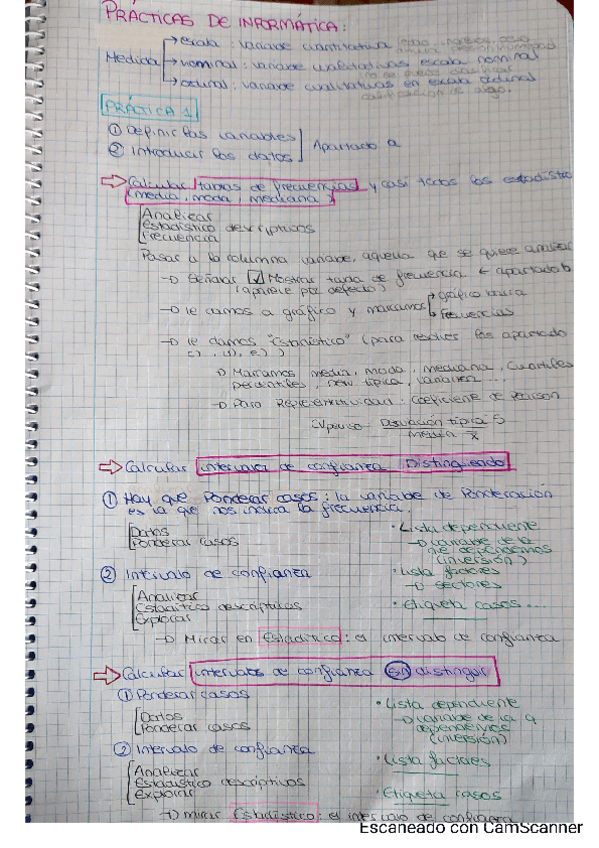 PRÁCTICAS DE INFORMÁTICA:
→ escala: variable cuantitativa
Medida → nominal: variable cualitativas escala nominal
→ ordinal: variable cualitativas en escala ordinal
PRÁCTICA 1
① Definir las variables
② Introducir los datos
Apartado a
⇨ Calcular tablas de frecuencias y casi todos los estadístic
(media, moda, mediana)
Analizar
Estadístico descriptivos
Frecuencia
Pasar a la columna variable, aquella que se quiere analizar
→ Señalar ☑ Mostrar tabla de frecuencia ← apartado b
(aparece por defecto)
→ le damos a gráfico y marcamos
gráfico barra
frecuencias
→ le damos "Estadístico" (para resolver los apartado
c), d), e))
→ Marcamos media, moda, mediana, Cuartiles
percentiles, desv típica, varianza ...
→ Para Representatividad: Coeficiente de Pearson
Desviación típica S
media x̄
⇨ Calcular intervalo de confianza Distinguiendo
① Hay que Ponderar casos: la variable de Ponderación
es la que nos indica la frecuencia.
Datos
Ponderar casos
· Lista dependiente
→ variable de la
que dependemos
(inversión)
② Intervalo de confianza
· Lista factores
→ sectores
Analizar
Estadístico descriptivos
Explorar
· Etiqueta casos...
→ Mirar en Estadístico: el intervalo de confianza
⇨ Calcular intervalos de confianza sin distinguir
① Ponderar casos
Datos
Ponderar casos
· Lista dependiente
→ variable de la q
dependemos
(inversión)
② Intervalo de confianza
· Lista factores
Analizar
Estadístico descriptivos
Explorar
· Etiqueta casos
→ mirar Estadístico: el intervalo de confianza
Escaneado con CamScanner